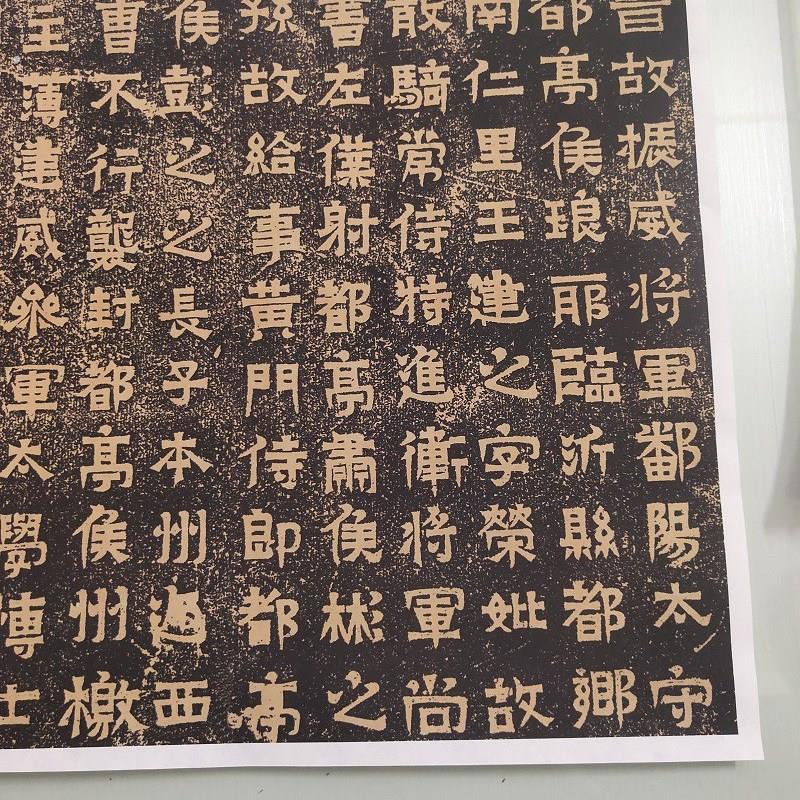 晉故振威將軍鄱陽太守
都亭侯琅耶臨沂縣都鄉
南仁里王建之字榮妣故
散騎常侍特進衛將軍尚
書左僕射都亭肅侯彬之
孫故給事黃門侍郎都亭
侯彭之之長子本州西
曹不行襲封都亭侯州檄
主薄建威參軍太學博士